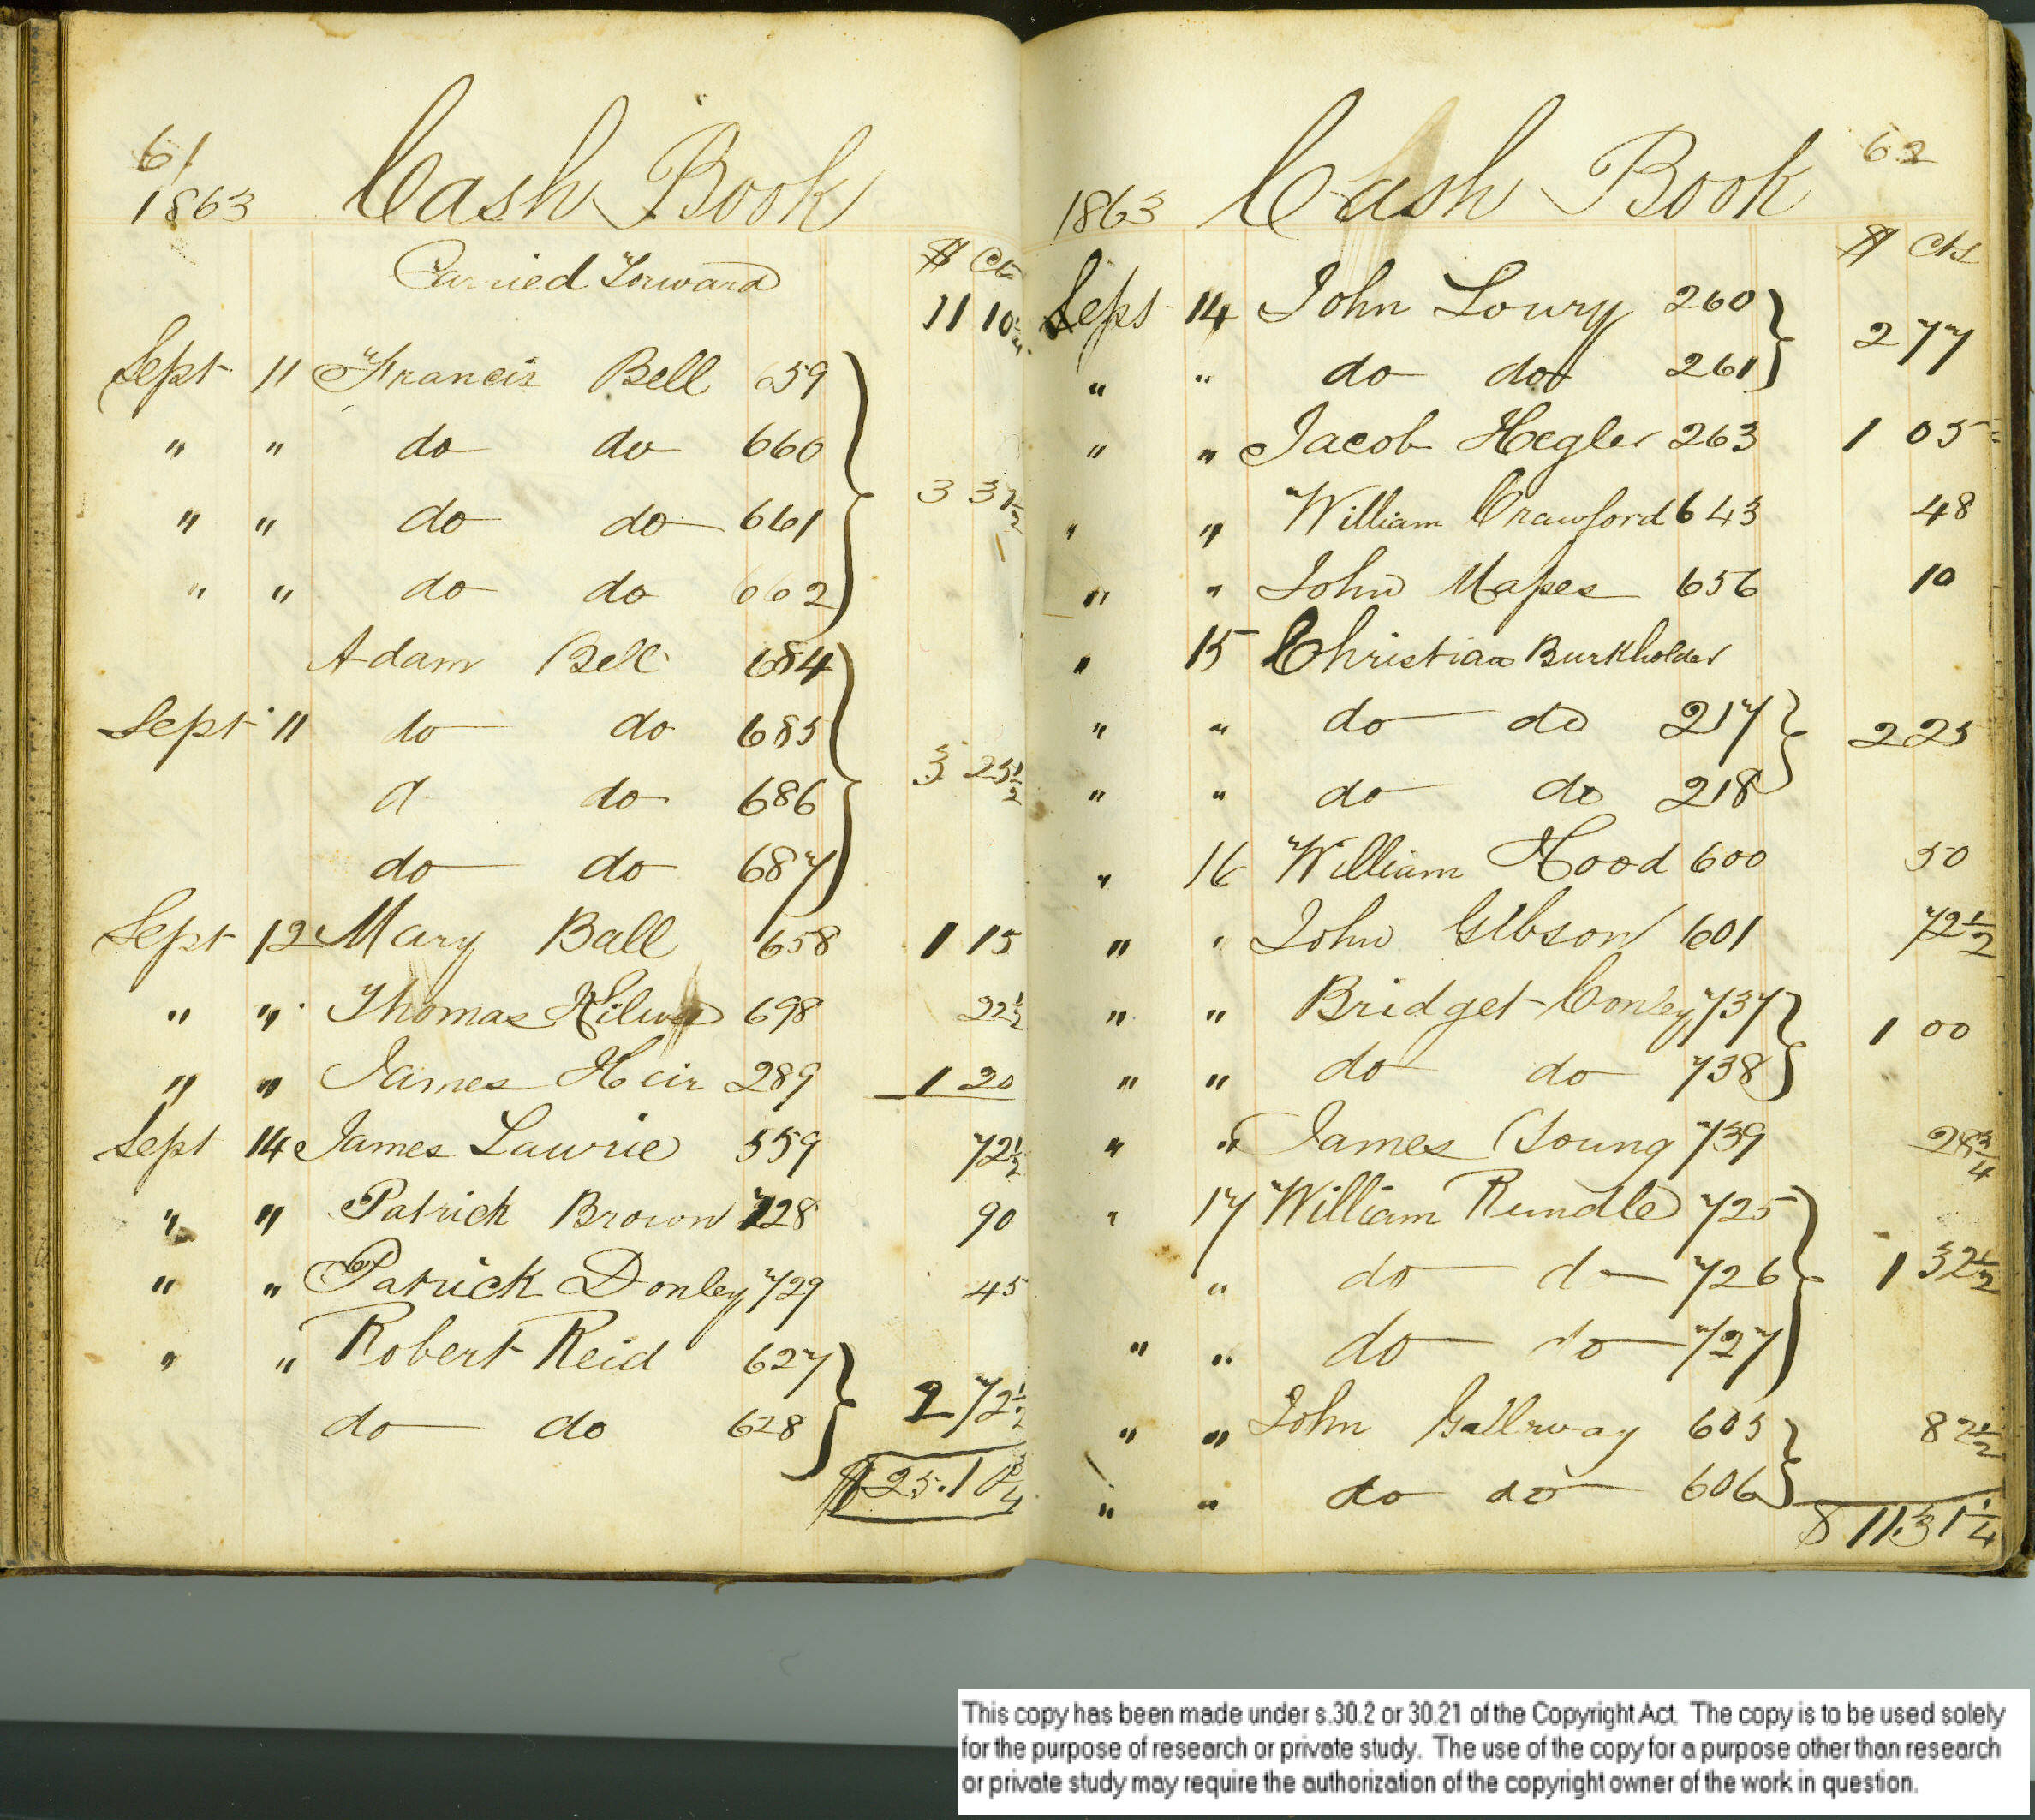 61
1863 Cash Book
$ Cts
Carried Forward 11 10 3/4
Sept 11 Francis Bell 659
" " do do 660
" " do do 661 3 37 1/2
" " do do 662
Adam Bell 684
Sept 11 do do 685
d do 686 3 25 1/2
do do 687
Sept 12 Mary Ball 658 1 15
" " Thomas 698 22 1/2
" " James Heir 289 1 20
Sept 14 James Lawrie 559 72 1/2
" " Patrick Brown 728 90
" " Patrick Donley 729 45
" " Robert Reid 627
do do 628 2 72 1/2
$25.10 3/4
62
1863 Cash Book
$ Cts
Sept 14 John Loury 260
" " do do 261 2 77
" " Jacob Hegler 263 1 05
" " William Crawford 643 48
" " John Mapes 656 10
" 15 Christian Burkholder
" " do do 217 2 25
" " do do 218
" 16 William Hood 600 50
" " John Gibson 601 72 1/2
" " Bridget Conley 737 1 00
" " do do 738
" " James Young 739 28 3/4
" 17 William Rundle 725
" do d 726 1 32 1/2
" " do do 727
" " John Gallrway 605 82 1/2
" " do do 606
$ 11.31 1/4
This copy has been made under s.30.2 or 30.21 of the Copyright Act. The copy is to be used solely
for the purpose of research or private study. The use of the copy for a purpose other than research
or private study may require the authorization of the copyright owner of the work in question.